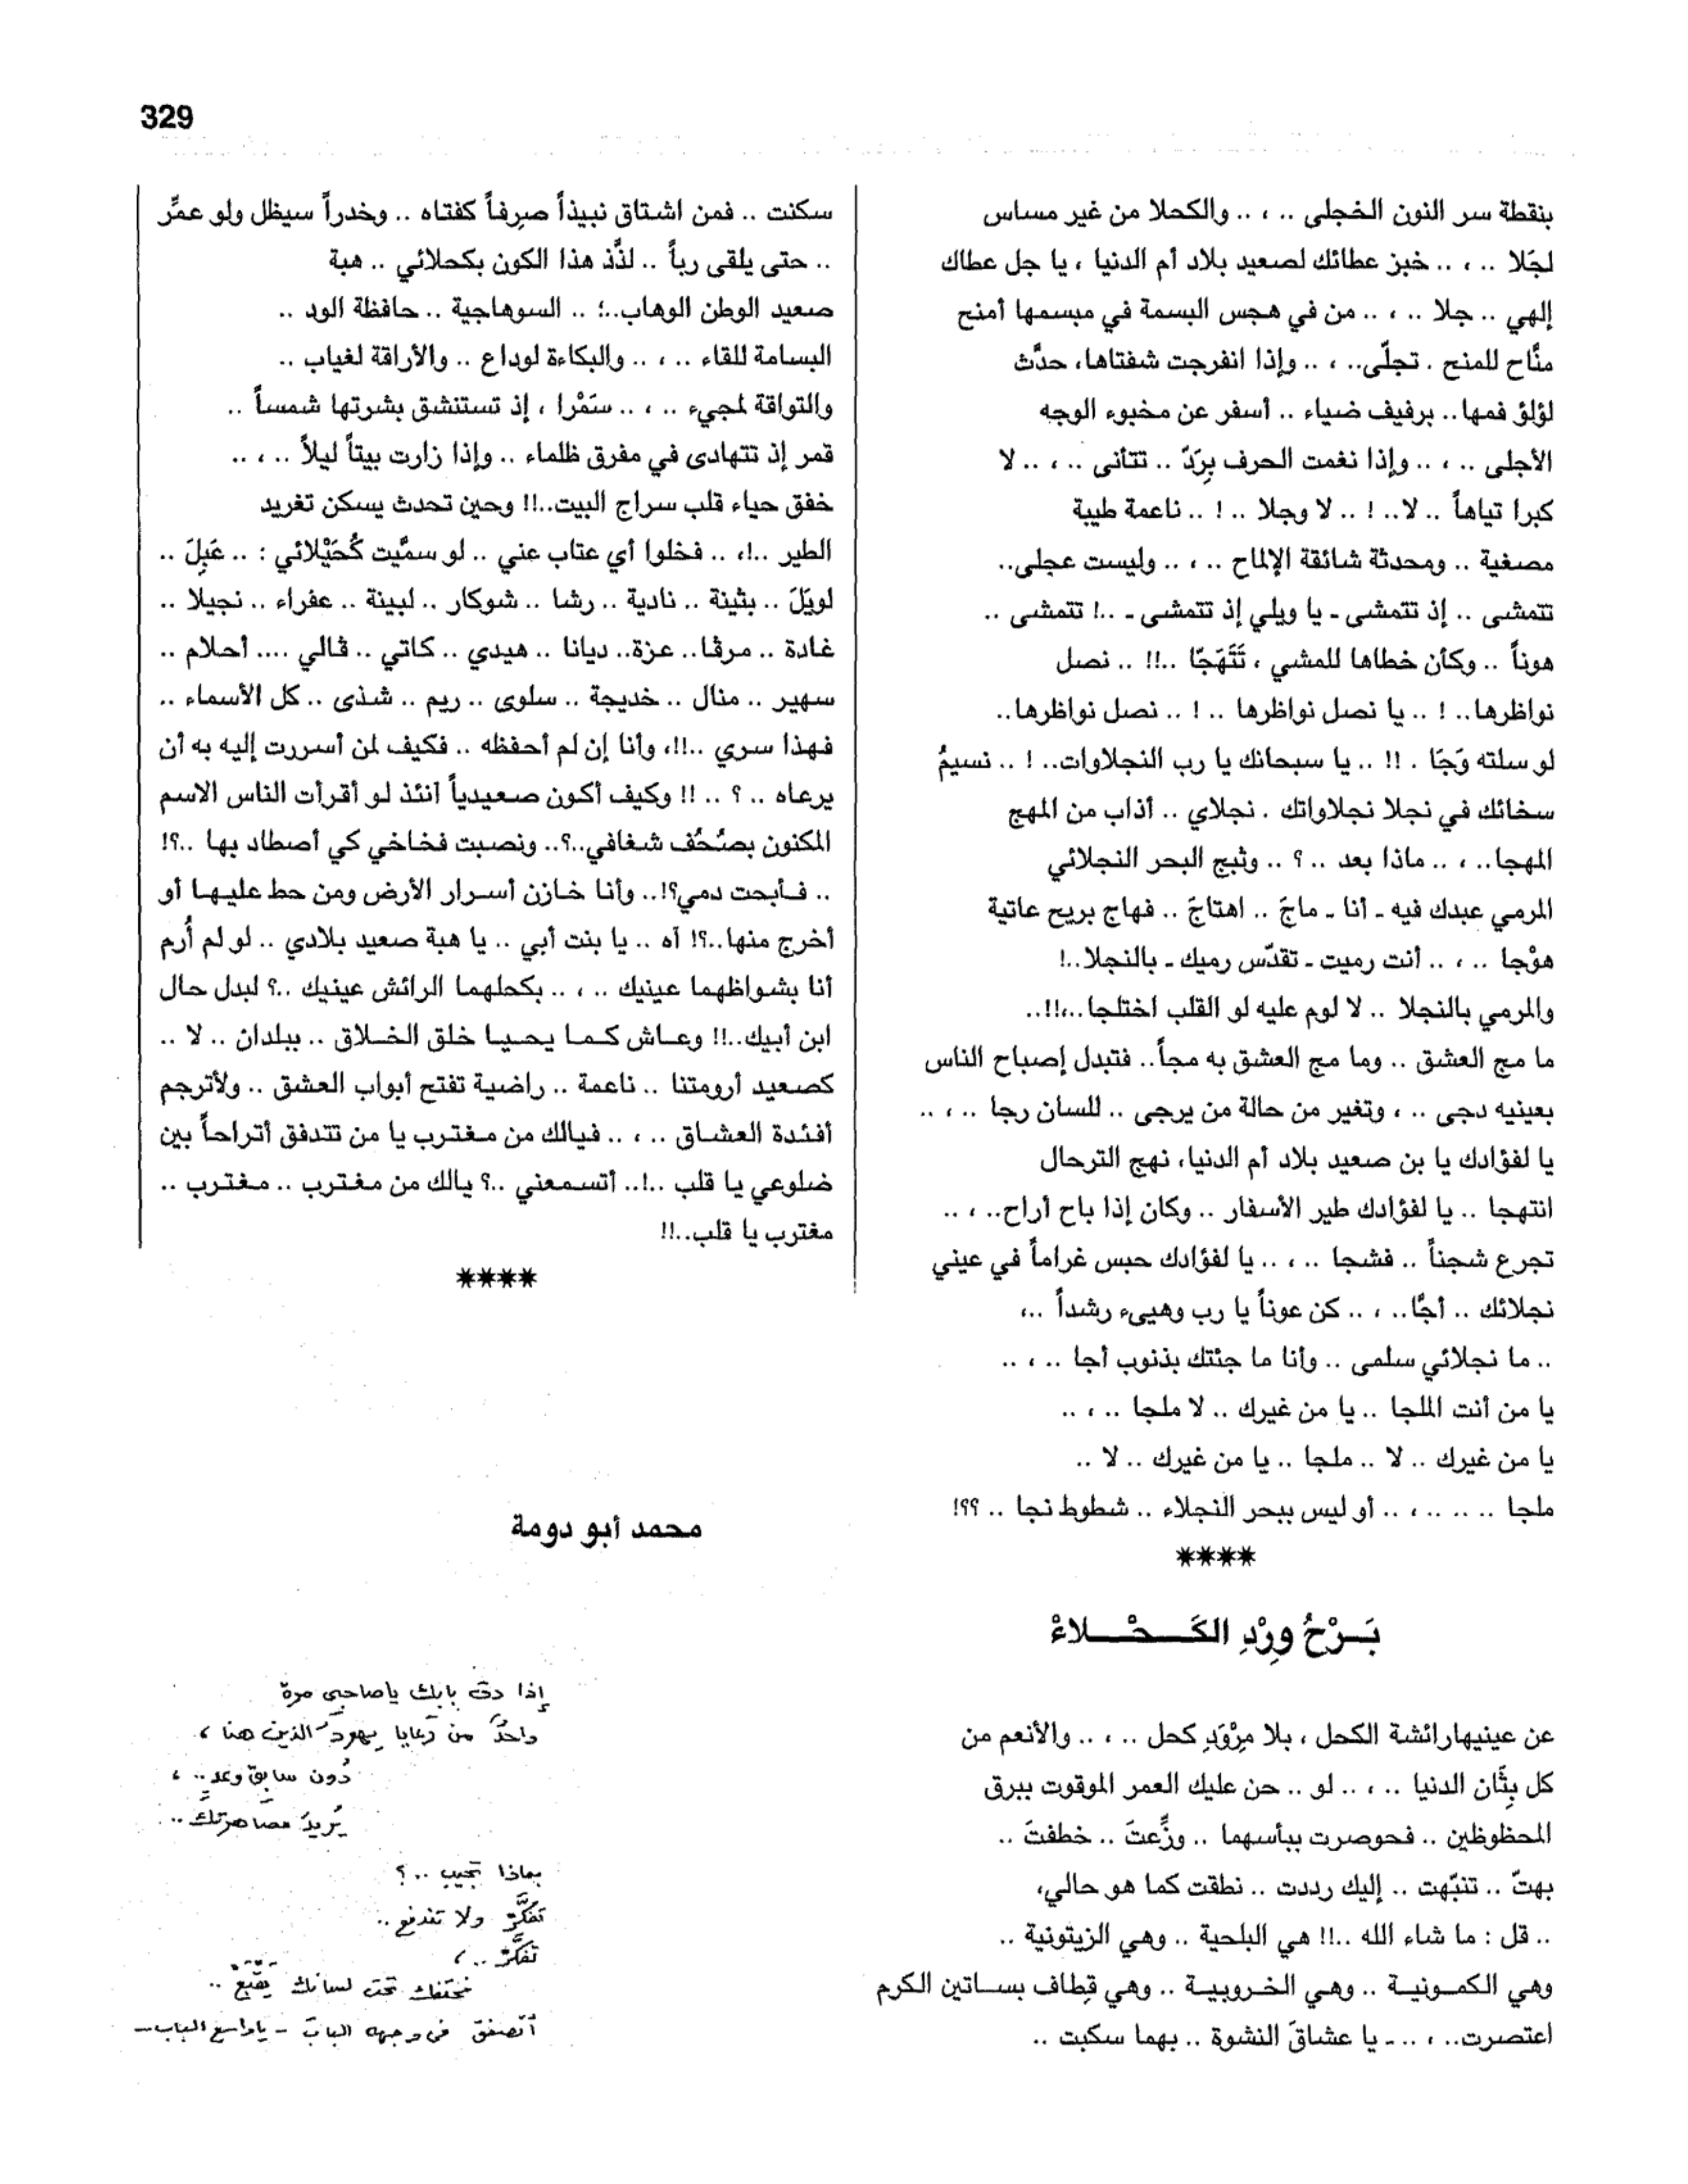 329
بنقطة سر النون الخجلى .. ، .. والكحلا من غير مساس
لجَلا .. ، .. خبز عطائك لصعيد بلاد أم الدنيا ، يا جل عطاك
إلهي .. جلا .. ، .. من في هجس البسمة في مبسمها أمنح
منَّاح للمنح . تجلّى.. ، .. وإذا انفرجت شفتاها، حدَّث
لؤلؤ فمها.. برفيف ضياء .. أسفر عن مخبوء الوجه
الأجلى .. ، .. وإذا نغمت الحرف بِرَدّ .. تتأنى .. ، .. لا
كبرا تياهاً .. لا.. ! .. لا وجلا .. ! .. ناعمة طيبة
مصغية .. ومحدثة شائقة الإلماح .. ، .. وليست عجلى..
تتمشى .. إذ تتمشى ـ يا ويلي إذ تتمشى ـ ..! تتمشى ..
هوناً .. وكأن خطاها للمشي ، تَتَهَجّا ..!! .. نصل
نواظرها.. ! .. يا نصل نواظرها .. ! .. نصل نواظرها..
لو سلته وَجَا . !! .. يا سبحانك يا رب النجلاوات.. ! .. نسيمُ
سخائك في نجلا نجلاواتك . نجلاي .. أذاب من المهج
المهجا.. ، .. ماذا بعد .. ؟ .. وثبج البحر النجلائي
المرمي عبدك فيه ـ أنا ـ ماجَ .. اهتاجَ .. فهاج بريح عاتية
هوْجا .. ، .. أنت رميت ـ تقدّس رميك ـ بالنجلا..!
والمرمي بالنجلا .. لا لوم عليه لو القلب اختلجا..،!!..
ما مج العشق .. وما مج العشق به مجاً.. فتبدل إصباح الناس
بعينيه دجى .. ، وتغير من حالة من يرجى .. للسان رجا .. ، ..
يا لفؤادك يا بن صعيد بلاد أم الدنيا، نهج الترحال
انتهجا .. يا لفؤادك طير الأسفار .. وكان إذا باح أراح.. ، ..
تجرع شجناً .. فشجا .. ، .. يا لفؤادك حبس غراماً في عيني
نجلائك .. أجًّا.. ، .. كن عوناً يا رب وهيىء رشداً ..،
.. ما نجلائي سلمى .. وأنا ما جئتك بذنوب أجا .. ، ..
يا من أنت الملجا .. يا من غيرك .. لا ملجا .. ، ..
يا من غيرك .. لا .. ملجا .. يا من غيرك .. لا ..
ملجا .. .. .. ، .. أو ليس ببحر النجلاء .. شطوط نجا .. ؟؟!
****
بَــرْحُ وِرْدِ الكَــحْــلاءْ
عن عينيهارائشة الكحل ، بلا مِرْوَدِ كحل .. ، .. والأنعم من
كل بِثَّان الدنيا .. ، .. لو .. حن عليك العمر الموقوت ببرق
المحظوظين .. فحوصرت ببأسهما .. وزِّعتَ .. خطفتَ ..
بهتّ .. تنبّهت .. إليك رددت .. نطقت كما هو حالي،
.. قل : ما شاء الله ..!! هي البلحية .. وهي الزيتونية ..
وهي الكمـونيـة .. وهـي الخـروبيـة .. وهي قِطاف بسـاتين الكرم
اعتصرت.. ، .. ـ يا عشاقَ النشوة .. بهما سكبت ..
سكنت .. فمن اشتاق نبيذاً صرِفاً كفتاه .. وخدراً سيظل ولو عمِّر
.. حتى يلقى رباً .. لذَّذ هذا الكون بكحلائي .. هبة
صعيد الوطن الوهاب..؛ .. السوهاجية .. حافظة الود ..
البسامة للقاء .. ، .. والبكاءة لوداع .. والأراقة لغياب ..
والتواقة لمجيء .. ، .. سَمْرا ، إذ تستنشق بشرتها شمساً ..
قمر إذ تتهادى في مفرق ظلماء .. وإذا زارت بيتاً ليلاً .. ، ..
خفق حياء قلب سراج البيت..!! وحين تحدث يسكن تغريد
الطير ..!، .. فخلوا أي عتاب عني .. لو سمَّيت كُحَيْلائي : .. عَبِلَ ..
لويَلَ .. بثينة .. نادية .. رشا .. شوكار .. لبينة .. عفراء .. نجيلا ..
غادة .. مرڤا.. عزة.. ديانا .. هيدي .. كاتي .. ڤالي .... أحلام ..
سهير .. منال .. خديجة .. سلوى .. ريم .. شذى .. كل الأسماء ..
فهذا سري ..!!، وأنا إن لم أحفظه .. فكيف لمن أسررت إليه به أن
يرعاه .. ؟ .. !! وكيف أكون صعيدياً آنئذ لو أقرأت الناس الاسم
المكنون بصُحُف شغافي..؟.. ونصبت فخاخي كي أصطاد بها ..؟!
.. فـأبحت دمي؟!.. وأنا خازن أسـرار الأرض ومن حط عليـهـا أو
أخرج منها..؟! آه .. يا بنت أبي .. يا هبة صعيد بلادي .. لو لم أُرم
أنا بشواظهما عينيك .. ، .. بكحلهما الرائش عينيك ..؟ لبدل حال
ابن أبيك..!! وعـاش كـمـا يحـيـا خلق الخـلاق .. ببلدان .. لا ..
كصعيد أرومتنا .. ناعمة .. راضية تفتح أبواب العشق .. ولأترجم
أفئدة العشـاق .. ، .. فيالك من مغترب يا من تتدفق أتراحاً بين
ضلوعي يا قلب ..!.. أتسمعني ..؟ يالك من مغترب .. مغترب ..
مغترب يا قلب..!!
****
محمد أبو دومة
إذا دق بابك ياصاحبي مرة
واحدٌ من رعايا يهودَ الذين هنا ،
دُون سابق وعدٍ .. ،
يُريدُ مصاهرتك ..
بماذا تجيب .. ؟
تفكَّرْ ولا تندفع ..
تفكَّرْ .. ،
تحت لسانك
في وجهه الباب - ياواسع الباب -